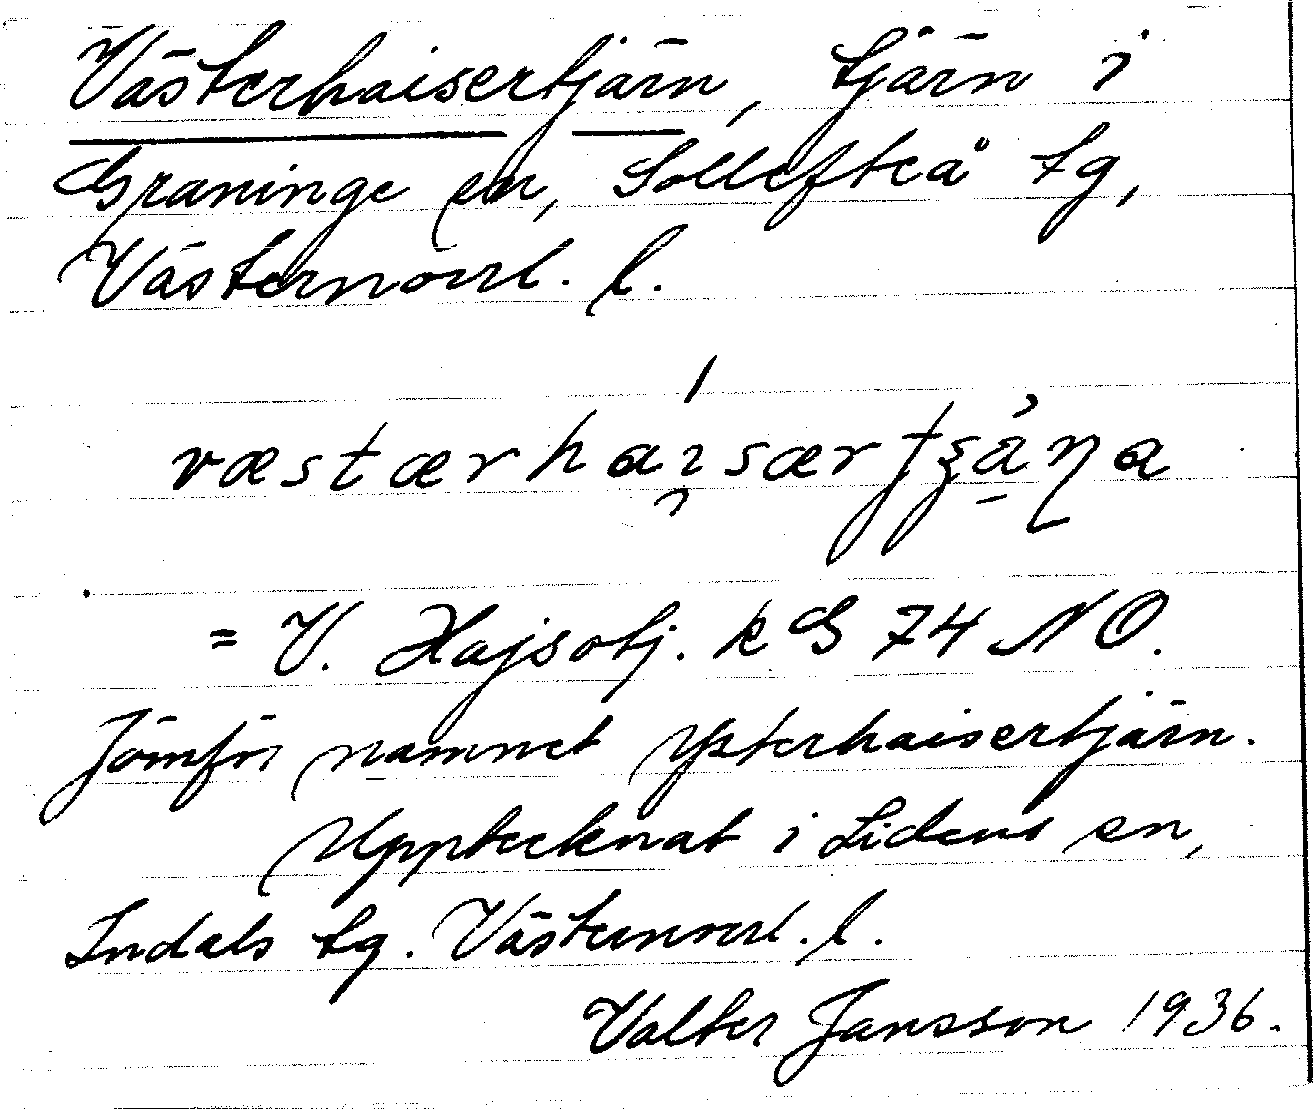 Västerhaisertjärn, tjärn i
Graninge sn, Sollefteå tg,
Västernorrl. l.
= V. Hajsotj. k G 74 NO.
Jämför namnet Ysterhaisertjärn.
Upptecknat i Lidens sn,
Indals tg. Västernorrl. l.
Valter Jansson 1936.